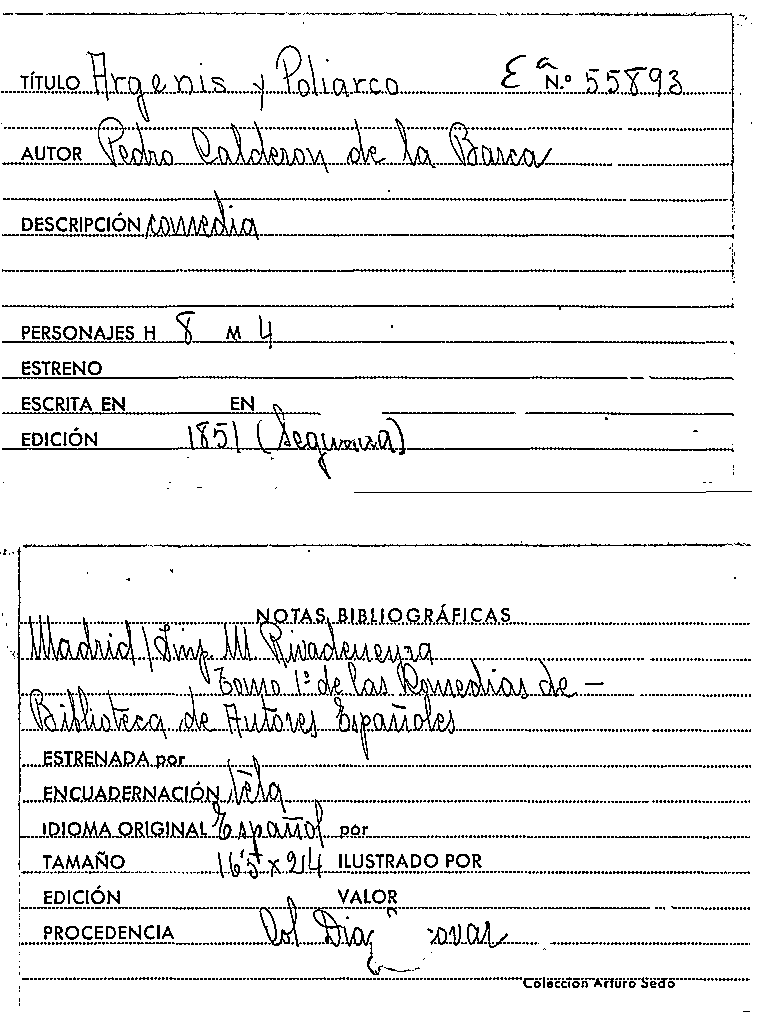 TÍTULO Argenis y Poliarco Eª N.º 55893
AUTOR Pedro Calderon de la Barca
DESCRIPCIÓN comedia
PERSONAJES H 8 M 4
ESTRENO
ESCRITA EN EN
EDICIÓN 1851 (Segunda)
NOTAS BIBLIOGRÁFICAS
Madrid / Imp. M Rivadeneyra
Tomo 1º de las Comedias de -
Biblioteca de Autores Españoles
ESTRENADA por
ENCUADERNACIÓN tela
IDIOMA ORIGINAL Español por
TAMAÑO 16'5 x 24 ILUSTRADO POR
EDICIÓN VALOR
PROCEDENCIA Col Diaz
Colección Arturo Sedó